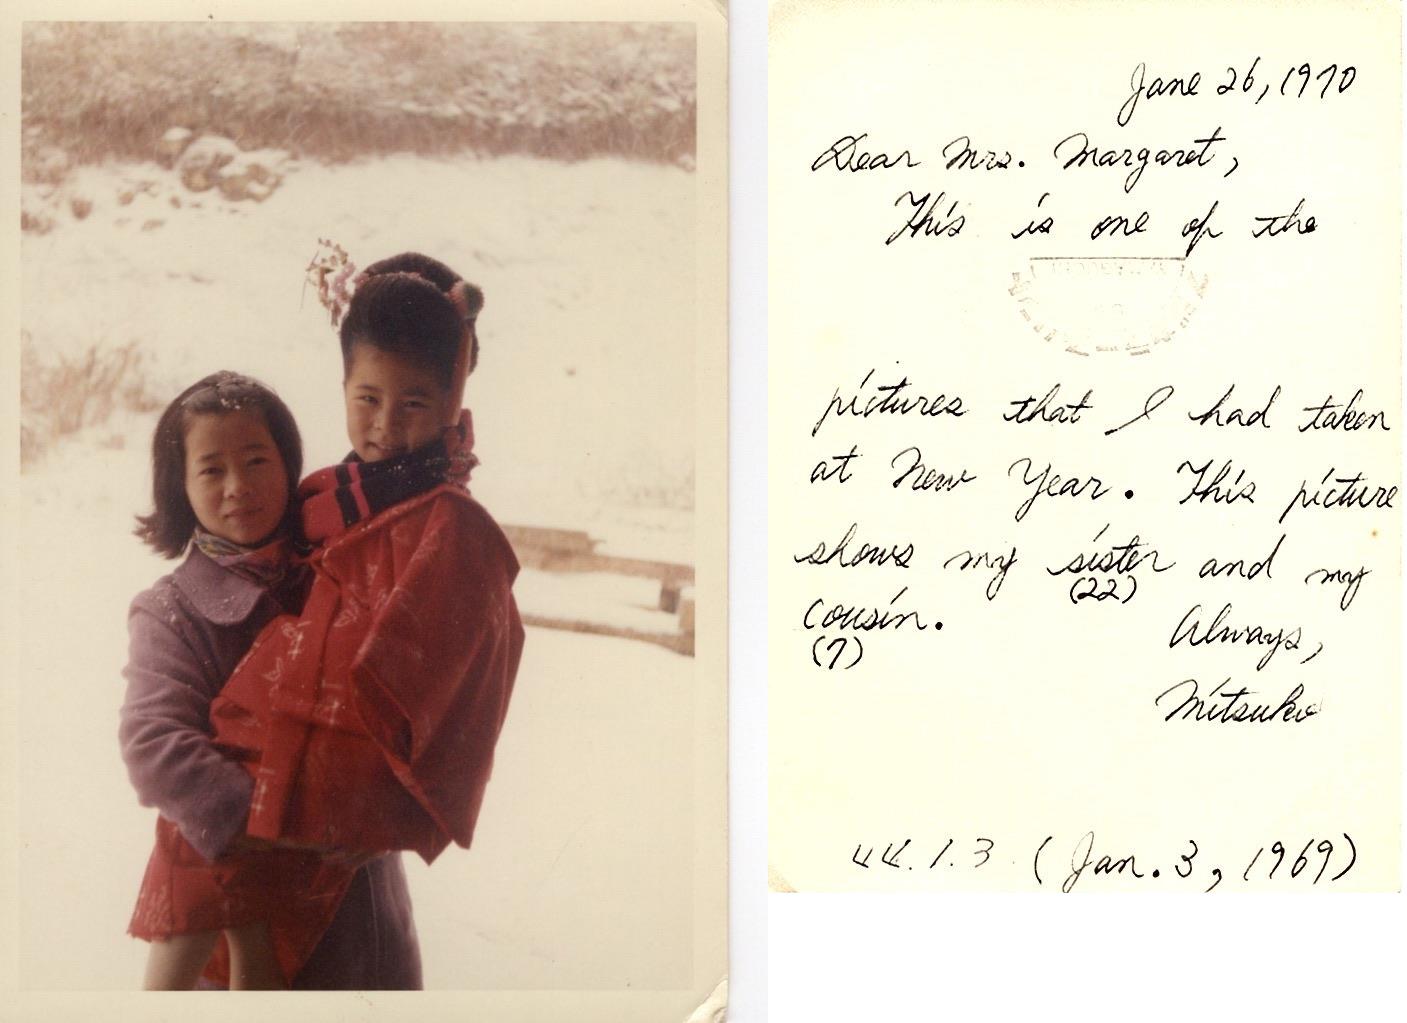 Jane 26, 1970
Dear Mrs. Margaret,
This is one of the
pictures that I had taken
at New Year. This picture
shows my sister and my
(22)
cousin.
(7)
Always,
Mitsuko
44.1.3 (Jan. 3, 1969)